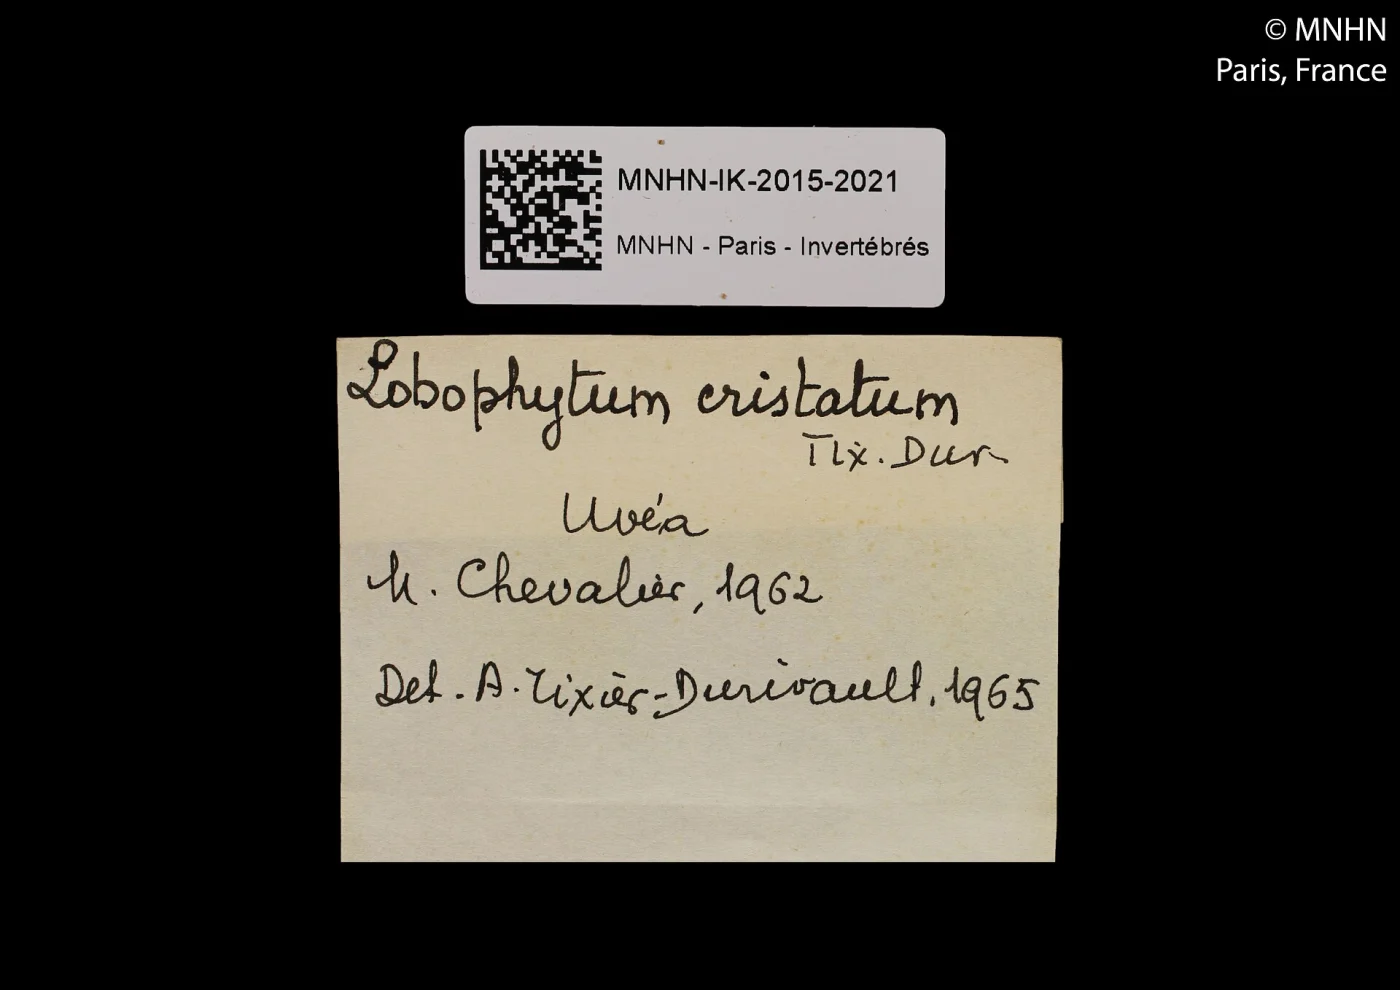 © MNHN
Paris, France
MNHN-IK-2015-2021
MNHN - Paris - Invertébrés
Lobophytum cristatum
Tix. Dur.
Uvéa
M. Chevalier, 1962
Det. A. Tixier-Durivault, 1965